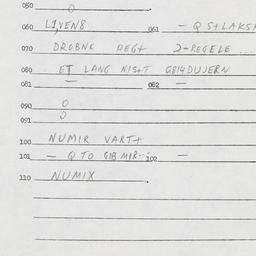 050 0
060 L1,VEN8 061 - Q S+LAKSH
070 DROBNE REG+ 2-REGELE ...
080 ET LANG NIS+T G8I4DUJERN
081 — 082 —
090 0
091 0
100 NUMIR VART+
101 - Q TO GIB MIR-- 102 —
110 NUMIX